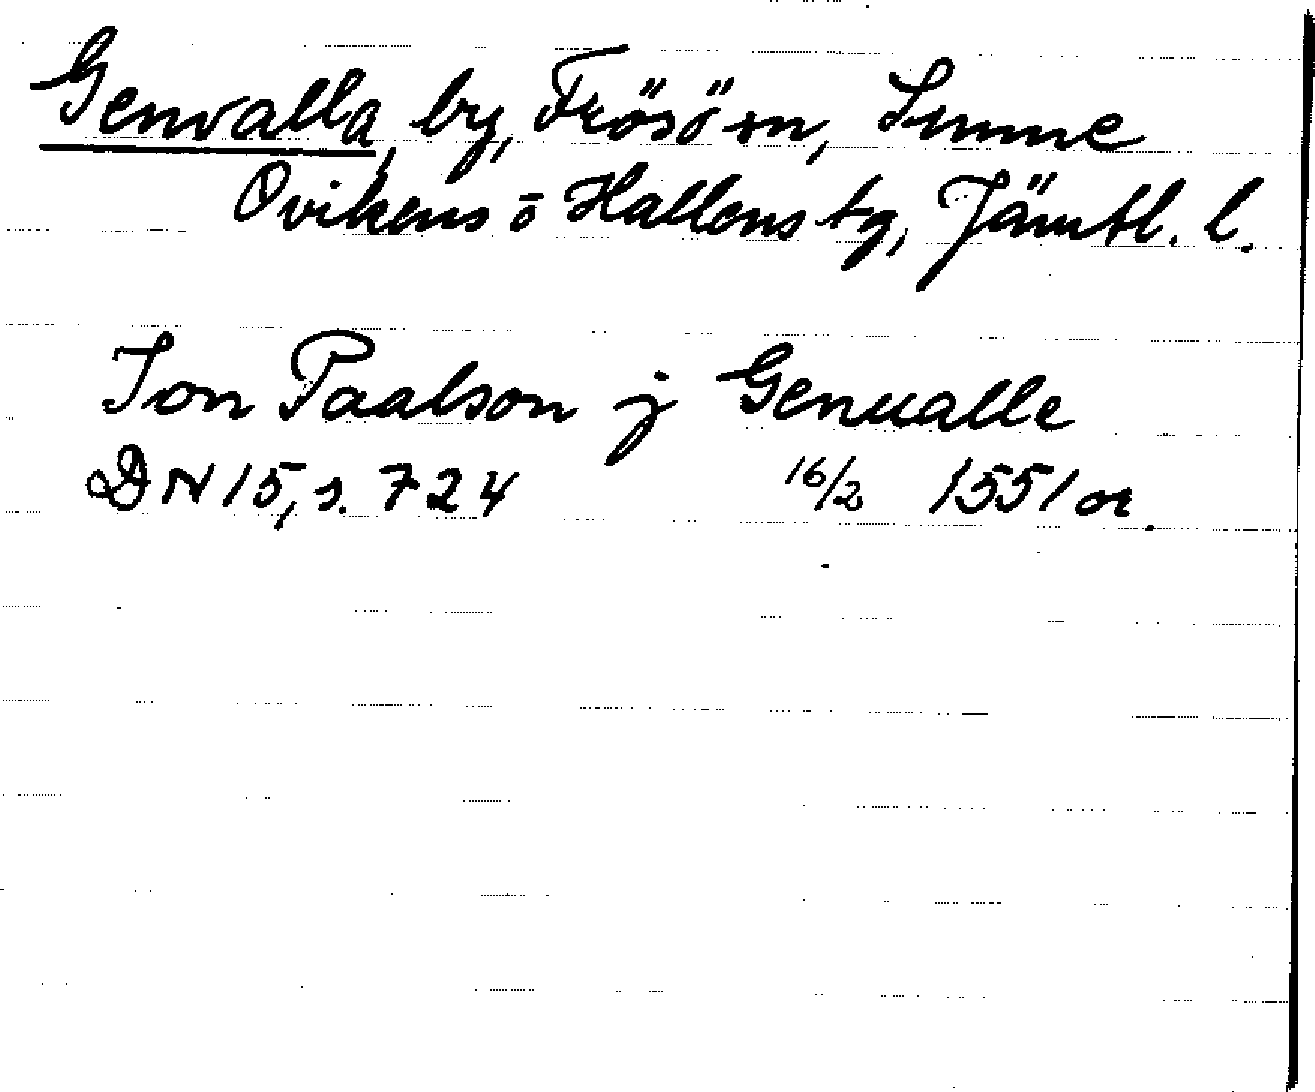 Genvalla, by, Frösö sn, Sunne
Ovikens o Hallens tg, Jämtl. l.
Jon Paalson j Genualle
DN 15, s. 724 16/2 1551 or.